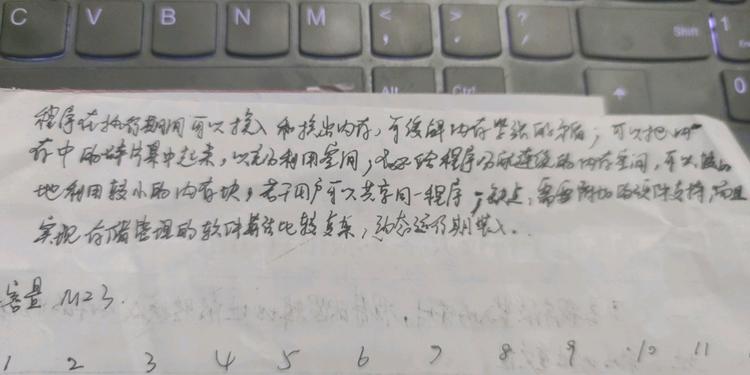 C V B N M < , > . ? / Shift 1
Alt Ctrl 0
程序在执行期间可以换入和换出内存,可缓解内存紧张的矛盾;可以把内
存中的碎片集中起来,以充分利用空间;不必给程序分配连续的内存空间,可以
地利用较小的内存块;若干用户可以共享同一程序;缺点,需要附加的硬件支持,而且
实现存储管理的软件算法比较复杂,动态运行期装入.
容量 M=3.
1 2 3 4 5 6 7 8 9 10 11